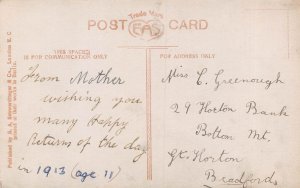 Trade Mark
EAS
POST CARD
THIS SPACE
IS FOR COMMUNICATION ONLY
FOR ADDRESS ONLY
From Mother
wishing you
many Happy
Returns of the day
in 1913 (age 11)
Miss C. Greenough
29 Horton Bank
Bottom Mt.
Gt. Horton
Bradford
Published by E. A. Schwerdtfeger & Co., London E. C.
Printed at their works in Berlin